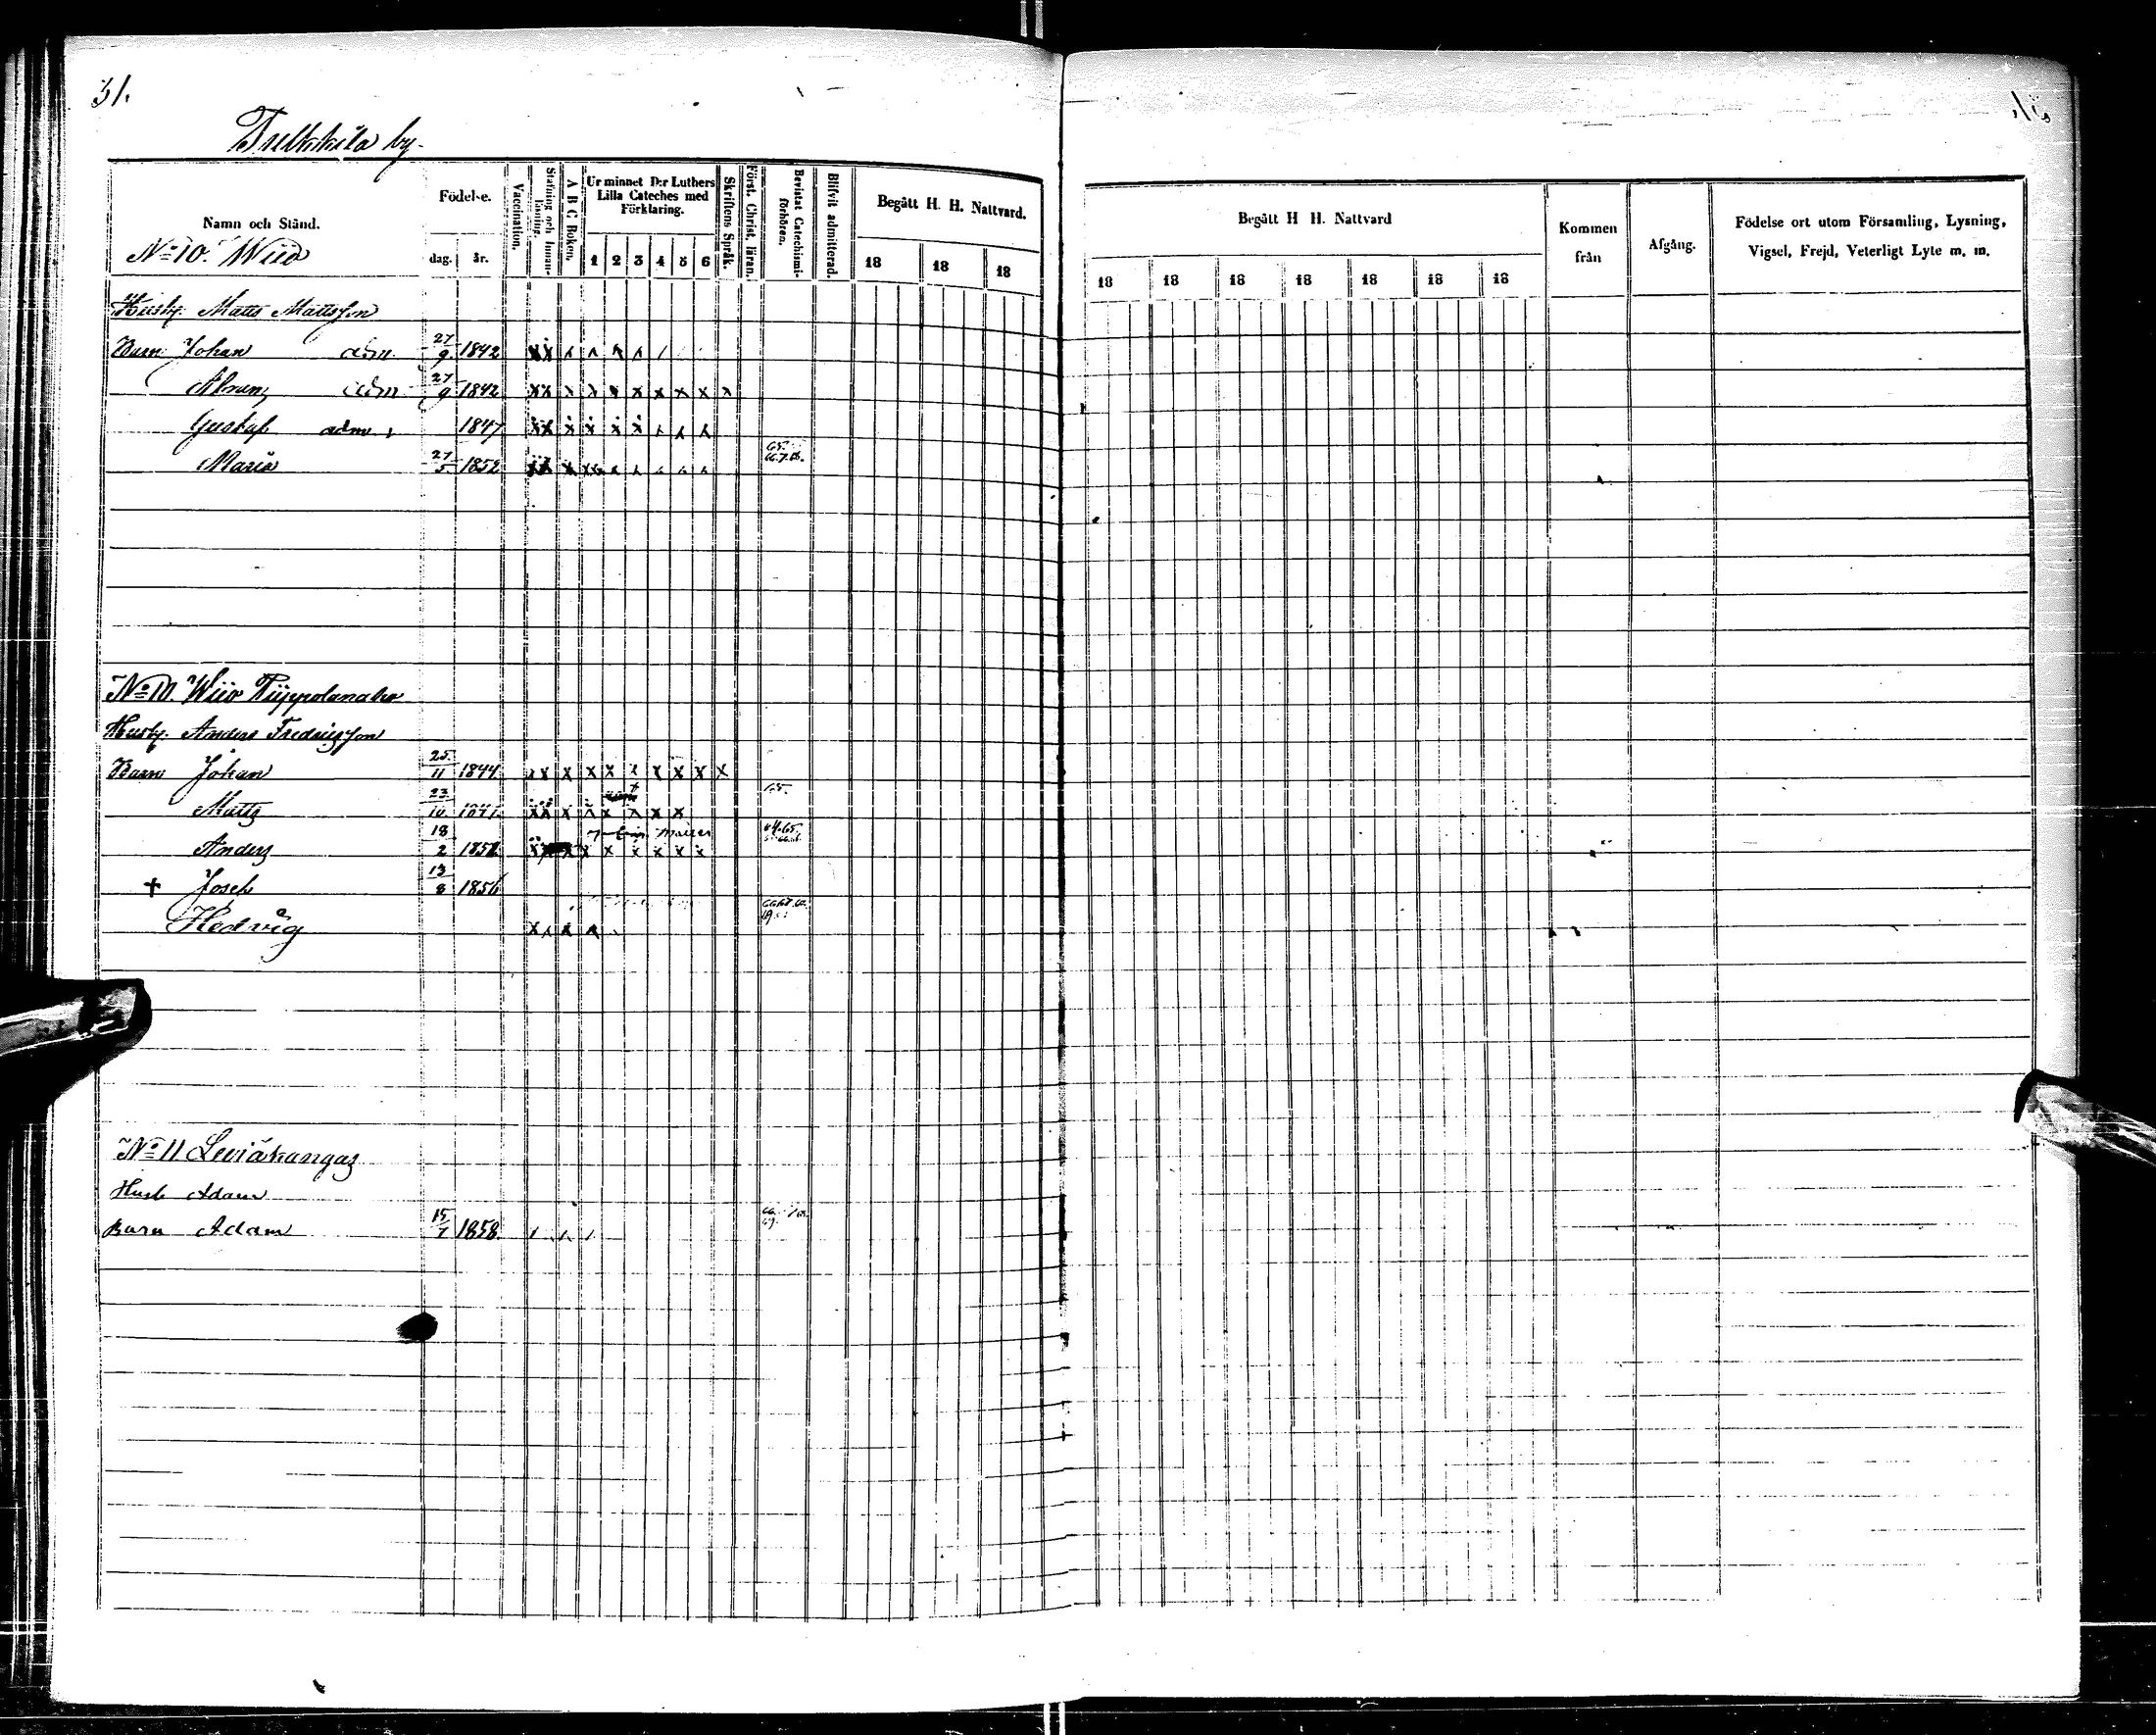 51.
Tulkkila by.
Namn och Stånd.
Födelse.
dag. år.
Vaccination.
Stafning och Innanläsning.
A B C Boken.
Ur minnet D:r Luthers Lilla Cateches med Förklaring.
1 2 3 4 5 6
Skriftens Språk.
Först. Christ. läran.
Bevistat Catechismiförhören.
Blifvit admitterad.
Begått H. H. Nattvard.
18 18 18
Begått H H. Nattvard
18 18 18 18 18 18 18
Kommen från
Afgång.
Födelse ort utom Församling, Lysning, Vigsel, Frejd, Veterligt Lyte m. m.
No 10. Wiio
Husb. Matts Mattsson
Barn Johan adm. 27/9 1842
Abram adm 27/9 1842
Gustaf adm. 1847
Maria 27/5 1852
No 10. Wiio
Husb. Anders Fredricsson
Barn Johan 25/11 1844
Matts 23/10
Anders 18/2
+ Josef 13/8 1856
Hedvig
No 11 Leviäkangas
Husb Adam
Barn Adam 15/7 1858